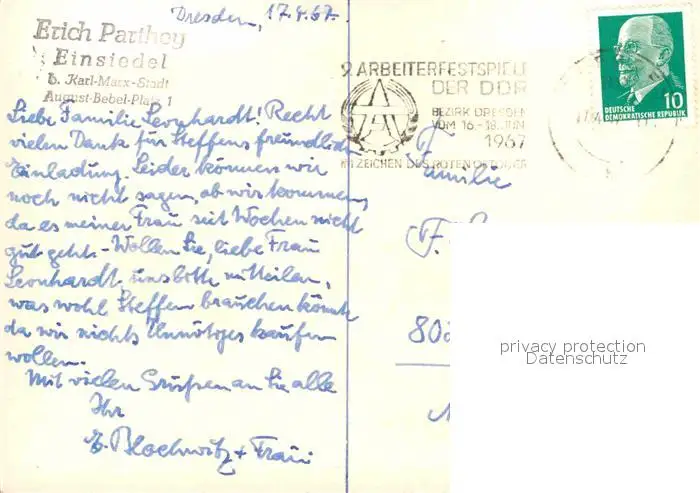 Dresden, 17.4.67.
Erich Parthey
Einsiedel
b. Karl-Marx-Stadt
August-Bebel-Platz 1
Liebe Familie Leonhardt! Recht
vielen Dank für Steffens freundliche
Einladung. Leider können wir
noch nicht sagen, ob wir kommen,
da es meiner Frau seit Wochen nicht
gut geht. - Wollen Sie, liebe Frau
Leonhardt uns bitte mitteilen,
was wohl Steffen brauchen könnte
da wir nichts Unnötiges kaufen
wollen.
Mit vielen Grüßen an Sie alle
Ihr
E. Blochwitz + Frau
9. ARBEITERFESTSPIELE
DER DDR
BEZIRK DRESDEN
VOM 16.-18. JUNI
1967
IM ZEICHEN DES ROTEN OKTOBER
10
DEUTSCHE
DEMOKRATISCHE REPUBLIK
Familie
F.
80
privacy protection
Datenschutz